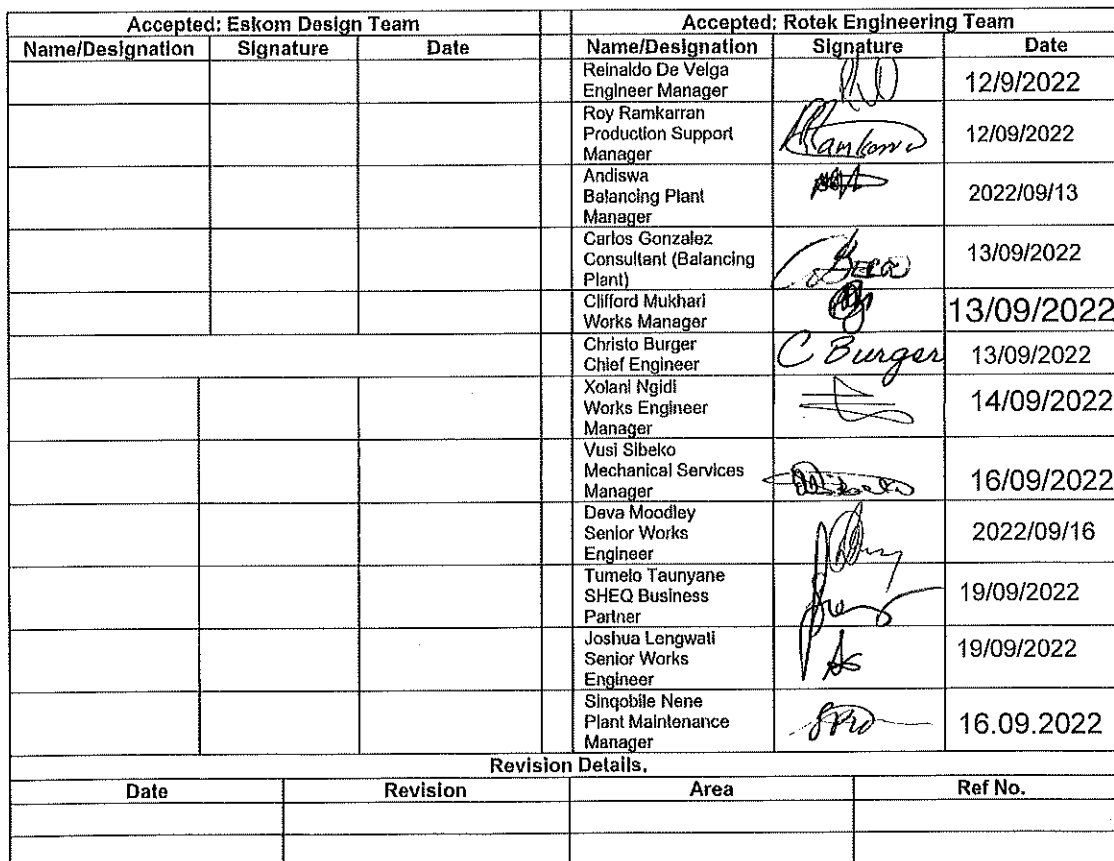 Accepted: Eskom Design Team
Accepted: Rotek Engineering Team
Name/Designation Signature Date
Name/Designation Signature Date
Reinaldo De Veiga
Engineer Manager
12/9/2022
Roy Ramkarran
Production Support
Manager
12/09/2022
Andiswa
Balancing Plant
Manager
2022/09/13
Carlos Gonzalez
Consultant (Balancing
Plant)
13/09/2022
Clifford Mukhari
Works Manager
13/09/2022
Christo Burger
Chief Engineer
C Burger
13/09/2022
Xolani Ngidi
Works Engineer
Manager
14/09/2022
Vusi Sibeko
Mechanical Services
Manager
16/09/2022
Deva Moodley
Senior Works
Engineer
2022/09/16
Tumelo Taunyane
SHEQ Business
Partner
19/09/2022
Joshua Lengwati
Senior Works
Engineer
19/09/2022
Sinqobile Nene
Plant Maintenance
Manager
16.09.2022
Revision Details.
Date Revision Area Ref No.